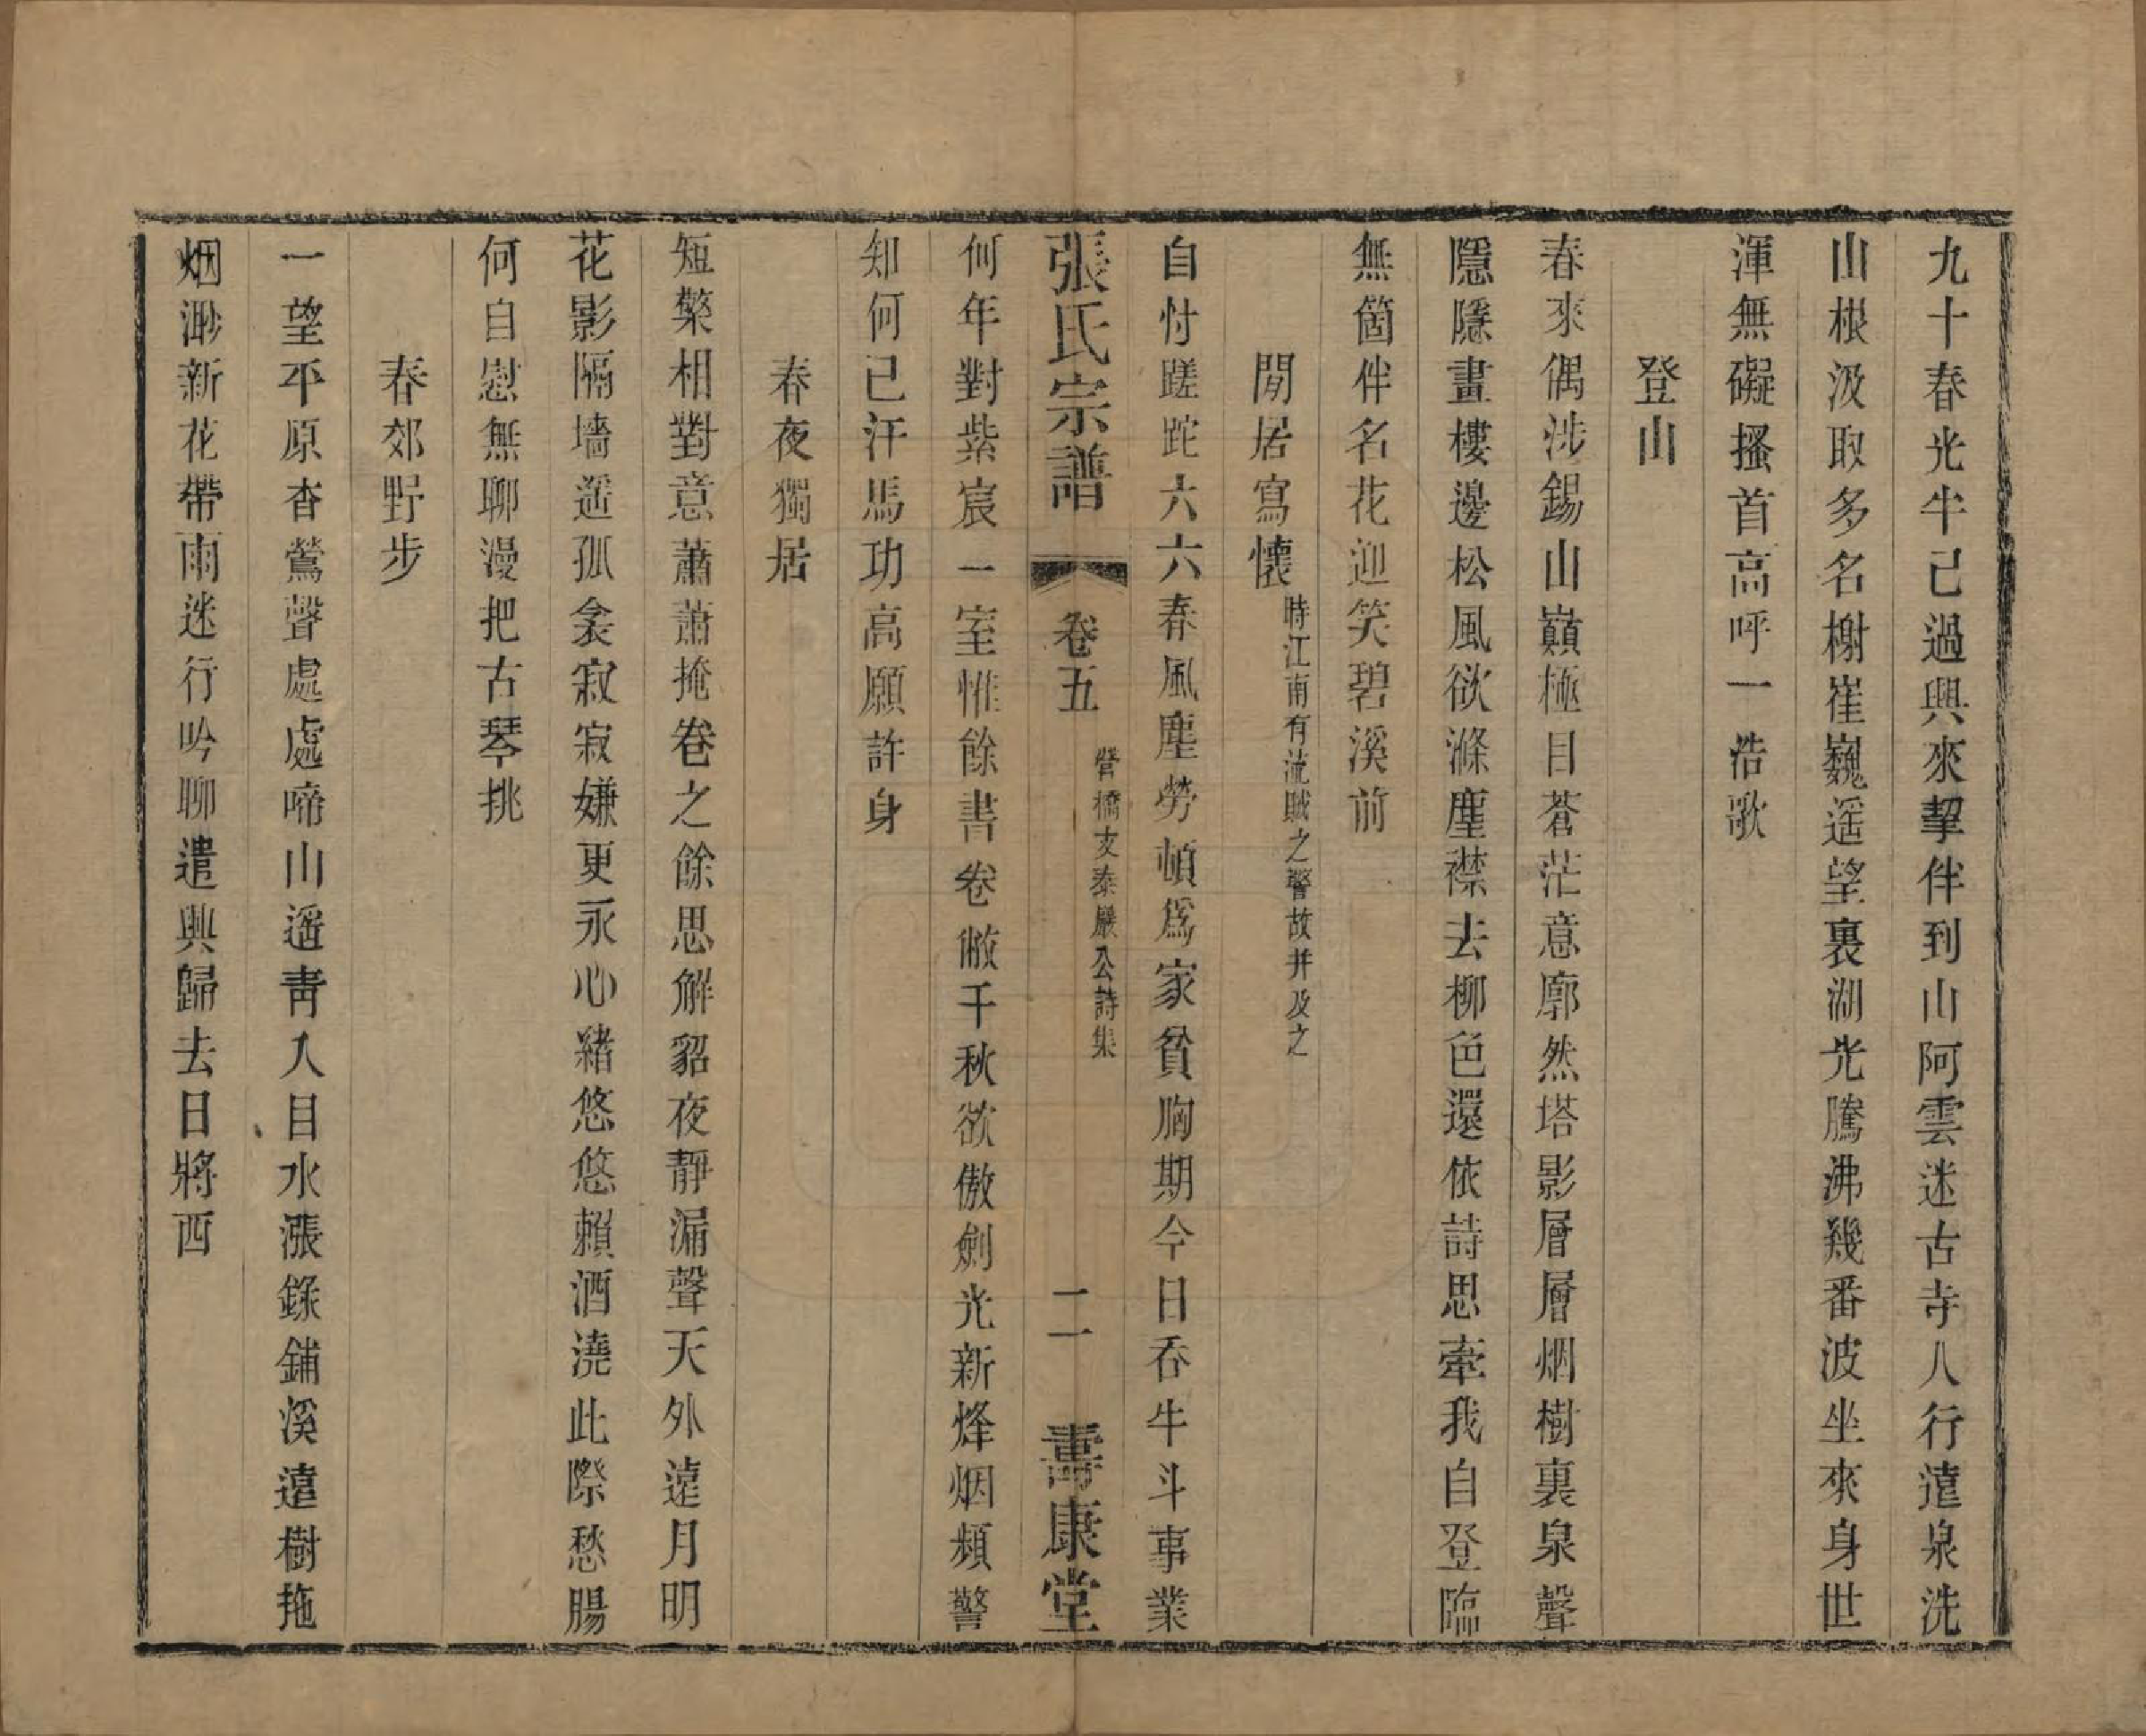 九十春光牛已過興來挈伴到山阿雲迷古寺人行遠泉洗
山根汲取多名榭崔巍遥望裏湖光騰沸幾番波坐來身世
渾無礙搔首高呼一浩歌
登山
春來偶涉錫山巔極目蒼茫意廓然塔影層層烟樹裏泉聲
隱隱畫樓邊松風欲滌塵襟去柳色還依詩思牽我自登臨
無箇伴名花迎笑碧溪前
閒居寫懷時江南有流賊之警故并及之
自忖蹉跎六六春風塵勞頓爲家貧胸期今日吞牛斗事業
張氏宗譜 卷五 營橋支泰巖公詩集 二一 壽康堂
何年對紫宸一室惟餘書卷敝千秋欲傲劍光新烽烟頻警
知何已汗馬功高願許身
春夜獨居
短檠相對意蕭蕭掩卷之餘思解貂夜靜漏聲天外遠月明
花影隔墻遥孤衾寂寂嫌更永心緒悠悠賴酒澆此際愁腸
何自慰無聊漫把古琴挑
春郊野步
一望平原杳鶯聲處處啼山遥青人目水漲錄鋪溪遠樹拖
烟渺新花帶雨迷行吟聊遣興歸去日將西